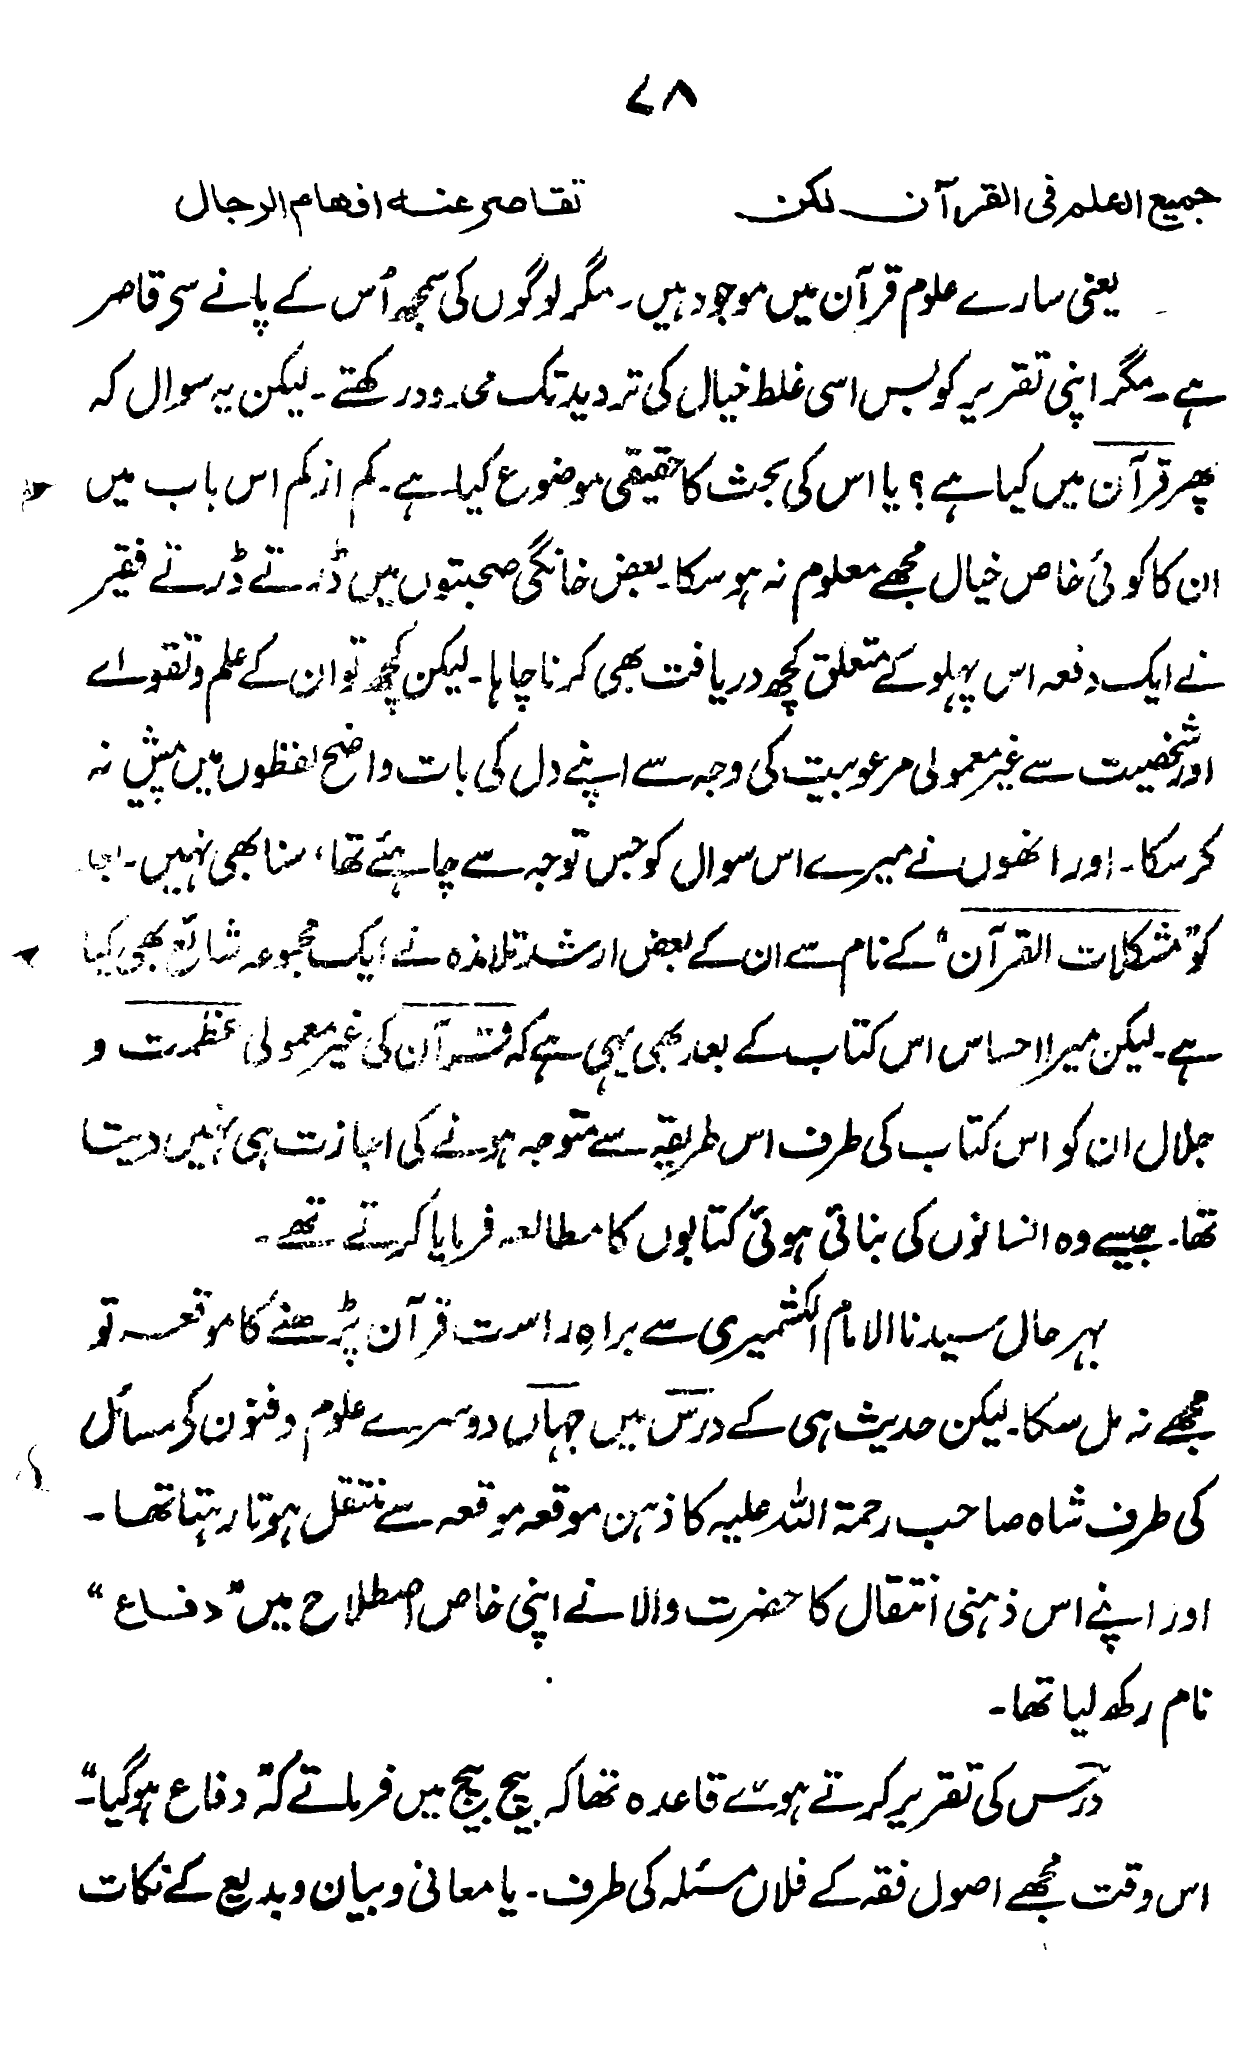 ۷۸
جمیع العلم فی القرآن لکن تقاصر عنہ افہام الرجال
یعنی سارے علوم قرآن میں موجود ہیں۔ مگر لوگوں کی سمجھ اُس کے پانے سے قاصر
ہے۔ مگر اپنی تقریر کو بس اسی غلط خیال کی تردید تک محدود رکھتے۔ لیکن یہ سوال کہ
پھر قرآن میں کیا ہے؟ یا اس کی بحث کا حقیقی موضوع کیا ہے۔ کم از کم اس باب میں
ان کا کوئی خاص خیال مجھے معلوم نہ ہو سکا۔ بعض خانگی صحبتوں میں ڈرتے ڈرتے فقیر
نے ایک دفعہ اس پہلو کے متعلق کچھ دریافت بھی کرنا چاہا۔ لیکن کچھ تو ان کے علم و تقوے اے
اور شخصیت سے غیر معمولی مرعوبیت کی وجہ سے اپنے دل کی بات واضح لفظوں میں پیش نہ
کر سکا۔ اور انھوں نے میرے اس سوال کو جس توجہ سے چاہئے تھا، سنا بھی نہیں۔
کو "مشکلات القرآن" کے نام سے ان کے بعض ارشد تلامذہ نے ایک مجموعہ شائع بھی کیا
ہے۔ لیکن میرا احساس اس کتاب کے بعد بھی یہی ہے کہ قرآن کی غیر معمولی عظمت و
جلال ان کو اس کتاب کی طرف اس طریقہ سے متوجہ ہونے کی اجازت ہی نہیں دیتا
تھا۔ جیسے وہ انسانوں کی بنائی ہوئی کتابوں کا مطالعہ فرمایا کرتے تھے۔
بہر حال سیدنا الامام الکشمیری سے براہِ راست قرآن پڑھنے کا موقعہ تو
مجھے نہ مل سکا۔ لیکن حدیث ہی کے درس میں جہاں دوسرے علوم و فنون کے مسائل
کی طرف شاہ صاحب رحمۃ اللہ علیہ کا ذہن موقعہ موقعہ سے منتقل ہوتا رہتا تھا۔
اور اپنے اس ذہنی انتقال کا حضرت والا نے اپنی خاص اصطلاح میں "دفاع"
نام رکھ لیا تھا۔
درس کی تقریر کرتے ہوئے قاعدہ تھا کہ بیچ بیچ میں فرماتے کہ "دفاع ہو گیا"۔
اس وقت مجھے اصول فقہ کے فلاں مسئلہ کی طرف۔ یا معانی و بیان و بدیع کے نکات